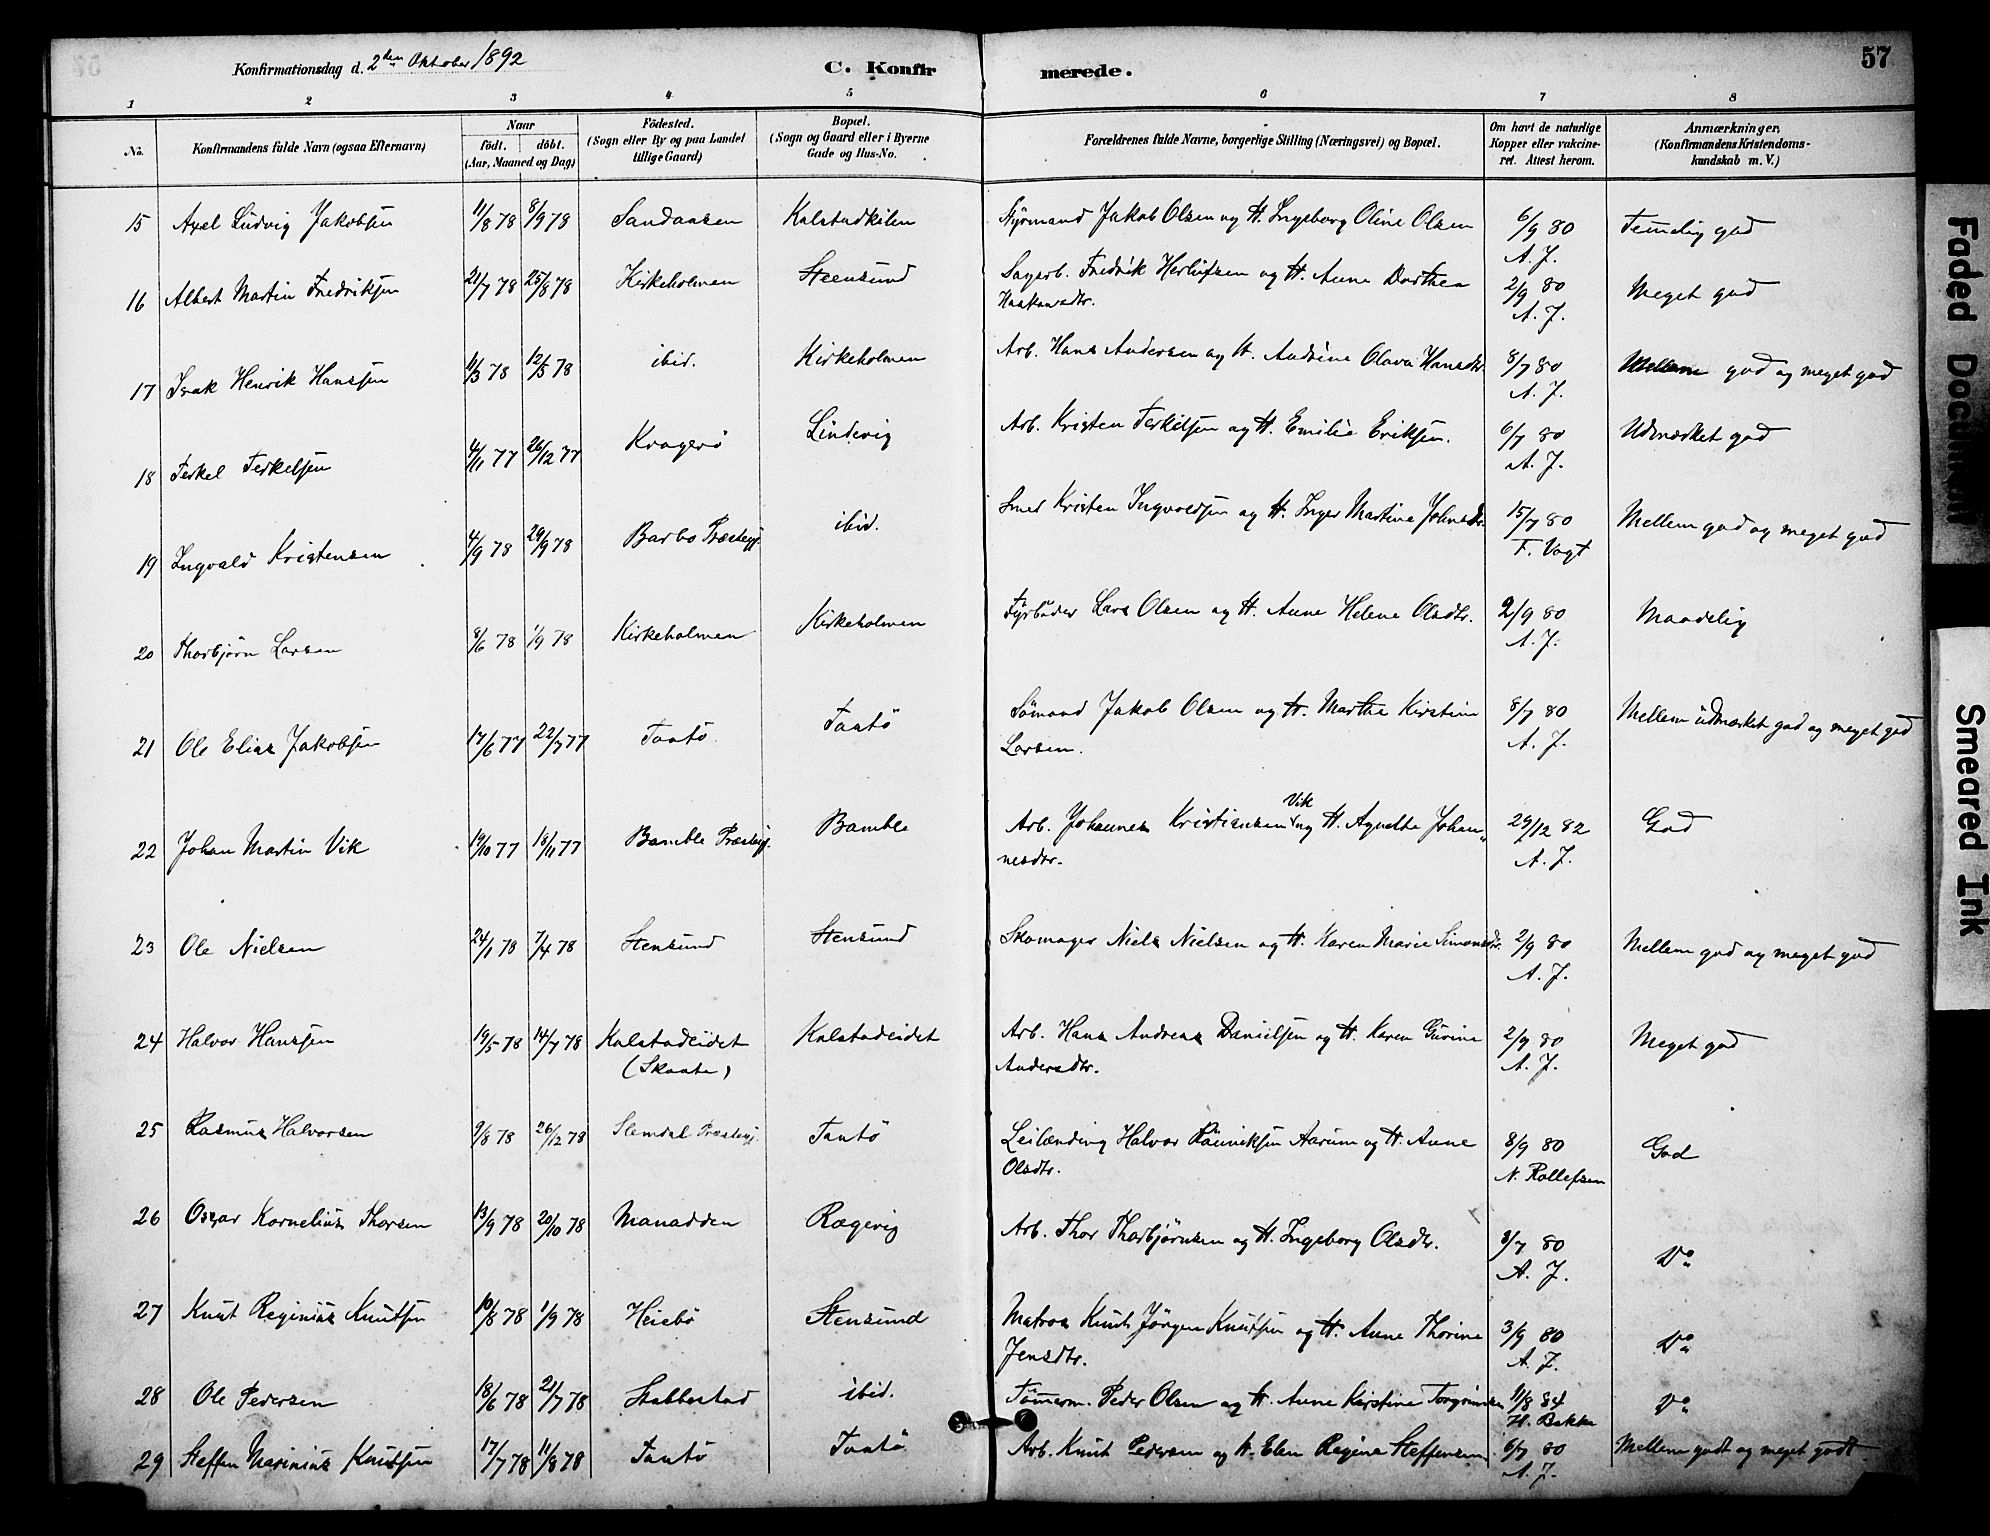 Konfirmationsdag d. 2den Oktober 1892
C. Konfirmerede.
57
1 2 3 4 5 6 7 8
No.
Konfirmandens fulde Navn (ogsaa Efternavn)
Naar
født. døbt.
(Aar, Maaned og Dag)
Fødested.
(Sogn eller By og paa Landet
tillige Gaard)
Bopæl.
(Sogn og Gaard eller i Byerne
Gade og Hus-No.
Forældrenes fulde Navne, borgerlige Stilling (Næringsvei) og Bopæl.
Om havt de naturlige
Kopper eller vakcine-
ret. Attest herom.
Anmærkninger,
(Konfirmandens Kristendoms-
kundskab m. V.)
15 Axel Ludvig Jakobsen 11/8 78 8/9 78 Sandaasen Kalstadkilen Styrmand Jakob Olsen og H. Ingeborg Oline Olsen 6/9 80 Temmelig god
A. J.
16 Albert Martin Fredriksen 21/7 78 25/8 78 Kirkeholmen Steensund Sagarb. Fredrik Herlufsen og H. Anne Dorthea 2/9 80 Meget god
Haakonsdtr. A. J.
17 Isak Henrik Hanssen 11/3 78 12/5 78 ibid. Kirkeholmen Arb. Hans Andersen og H. Andrine Olava Hansdtr. 8/7 80 Mellem god og meget god
A. J.
18 Terkel Terkelsen 4/11 77 26/12 77 Kragerø Lindevig Arb. Kristen Terkelsen og H. Emilie Eriksen. 6/7 80 Udmærket god
A. J.
19 Ingvald Kristensen 4/9 78 29/9 78 Barbo Præstegj. ibid. Smed Kristen Ingvaldsen og H. Inger Martine Johnsdtr. 15/7 80 Mellem god og meget god
F. Vogt
20 Thorbjørn Larsen 8/6 78 1/9 78 Kirkeholmen Kirkeholmen Fyrbøder Lars Olsen og H. Anne Helene Olsdtr. 2/9 80 Maadelig
A. J.
21 Ole Elias Jakobsen 17/6 77 22/7 77 Taatø Taatø Sømand Jakob Olsen og H. Marthe Kirstine 8/7 80 Mellem udmærket god og meget god
Larsen. A. J.
22 Johan Martin Vik 19/10 77 18/11 77 Bamble Præstegj. Bamble Arb. Johannes Kristiansen Vik og H. Agnethe Johan- 29/12 82 God
nesdtr. A. J.
23 Ole Nielsen 24/1 78 7/4 78 Stensund Stensund Skomager Niels Nielsen og H. Karen Marie Simonsdtr. 2/9 80 Mellem god og meget god
A. J.
24 Halvor Hanssen 19/5 78 14/7 78 Kalstadeidet Kalstadeidet Arb. Hans Andreas Danielsen og H. Karen Gurine 2/9 80 Meget god
(Skaate) Andersdtr. A. J.
25 Rasmus Halvorsen 9/8 78 26/12 78 Slemdal Præstegj. Taatø Leilænding Halvor Aarum og H. Anne 8/9 80 God
Olsdtr. N. Rollefsen
26 Oscar Kornelius Thorsen 13/9 78 20/10 78 Manadden Rægevig Arb. Thor Thorbjørnsen og H. Ingeborg Olsdtr. 8/7 80 Do
A. J.
27 Knut Reginius Knutsen 10/8 78 1/9 78 Heiebø Stensund Matros Knut Jørgen Knutsen og H. Anne Thorine 3/9 80 Do
Jensdtr. A. J.
28 Ole Pedersen 18/6 78 21/7 78 Stabbestad ibid. Tømerm. Peder Olsen og H. Anne Kirstine Torgrimsen 11/8 84 Do
H. Bakke
29 Steffen Marinius Knutsen 17/7 78 11/8 78 Taatø Taatø Arb. Knut Pedersen og H. Elen Regine Steffensen 6/7 80 Mellem godt og meget godt.
A. J.
Faded Document
Smeared Ink